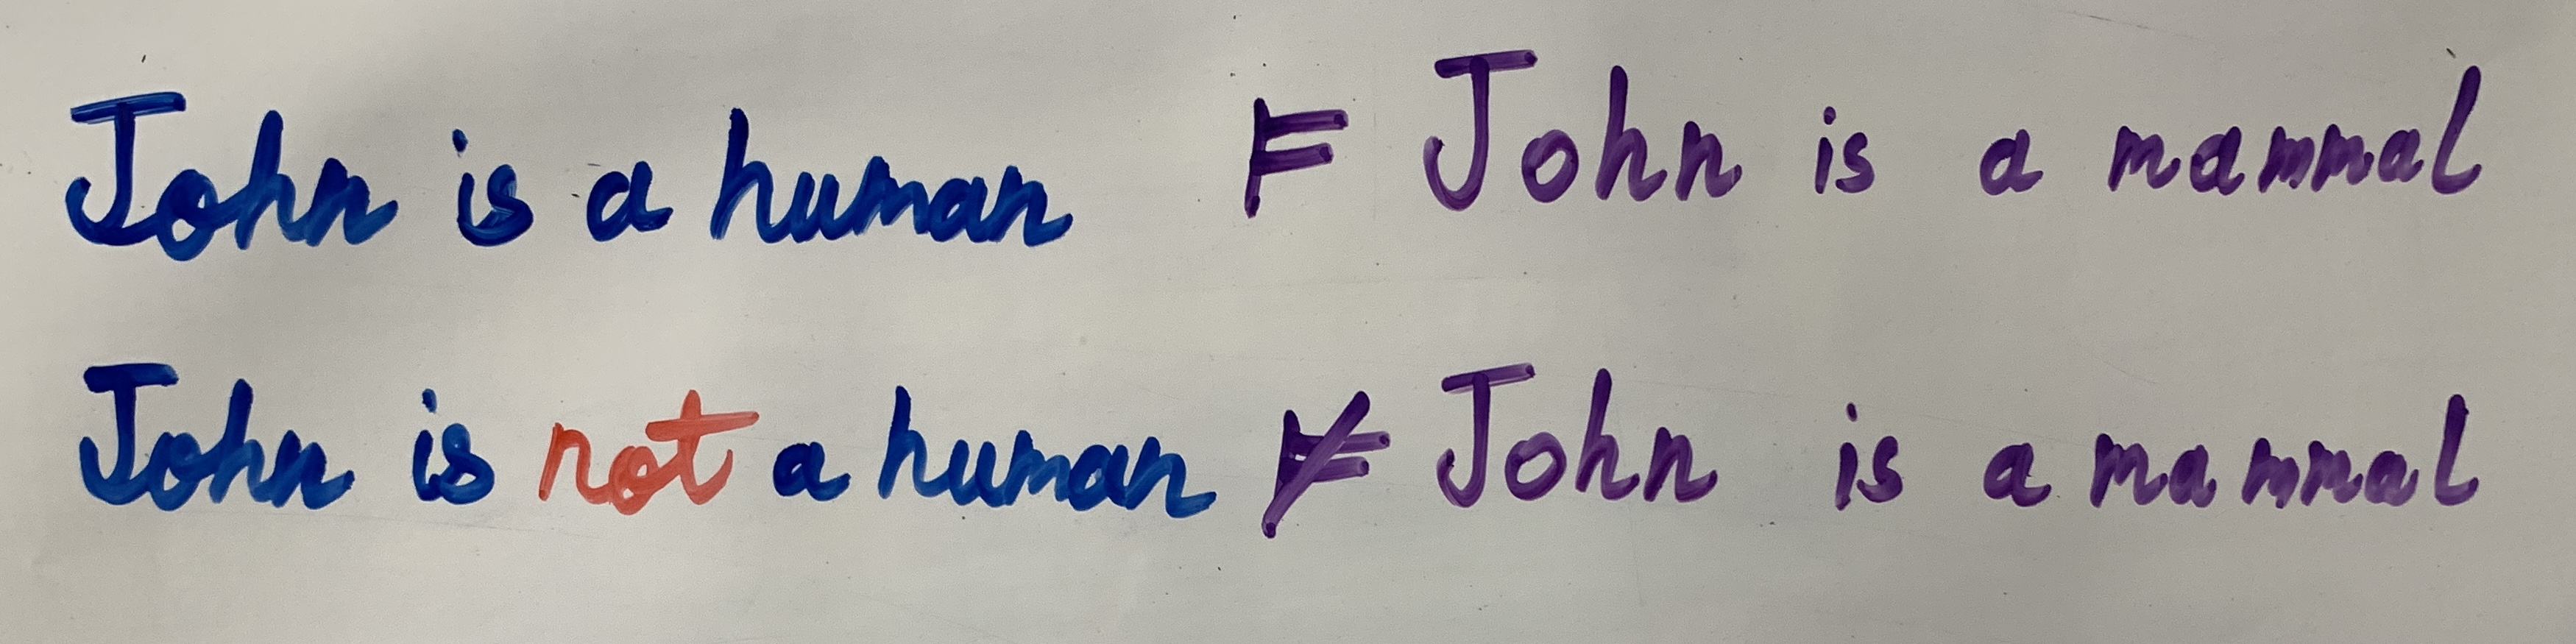 John is a human ⊨ John is a mammal
John is not a human ⊭ John is a mammal